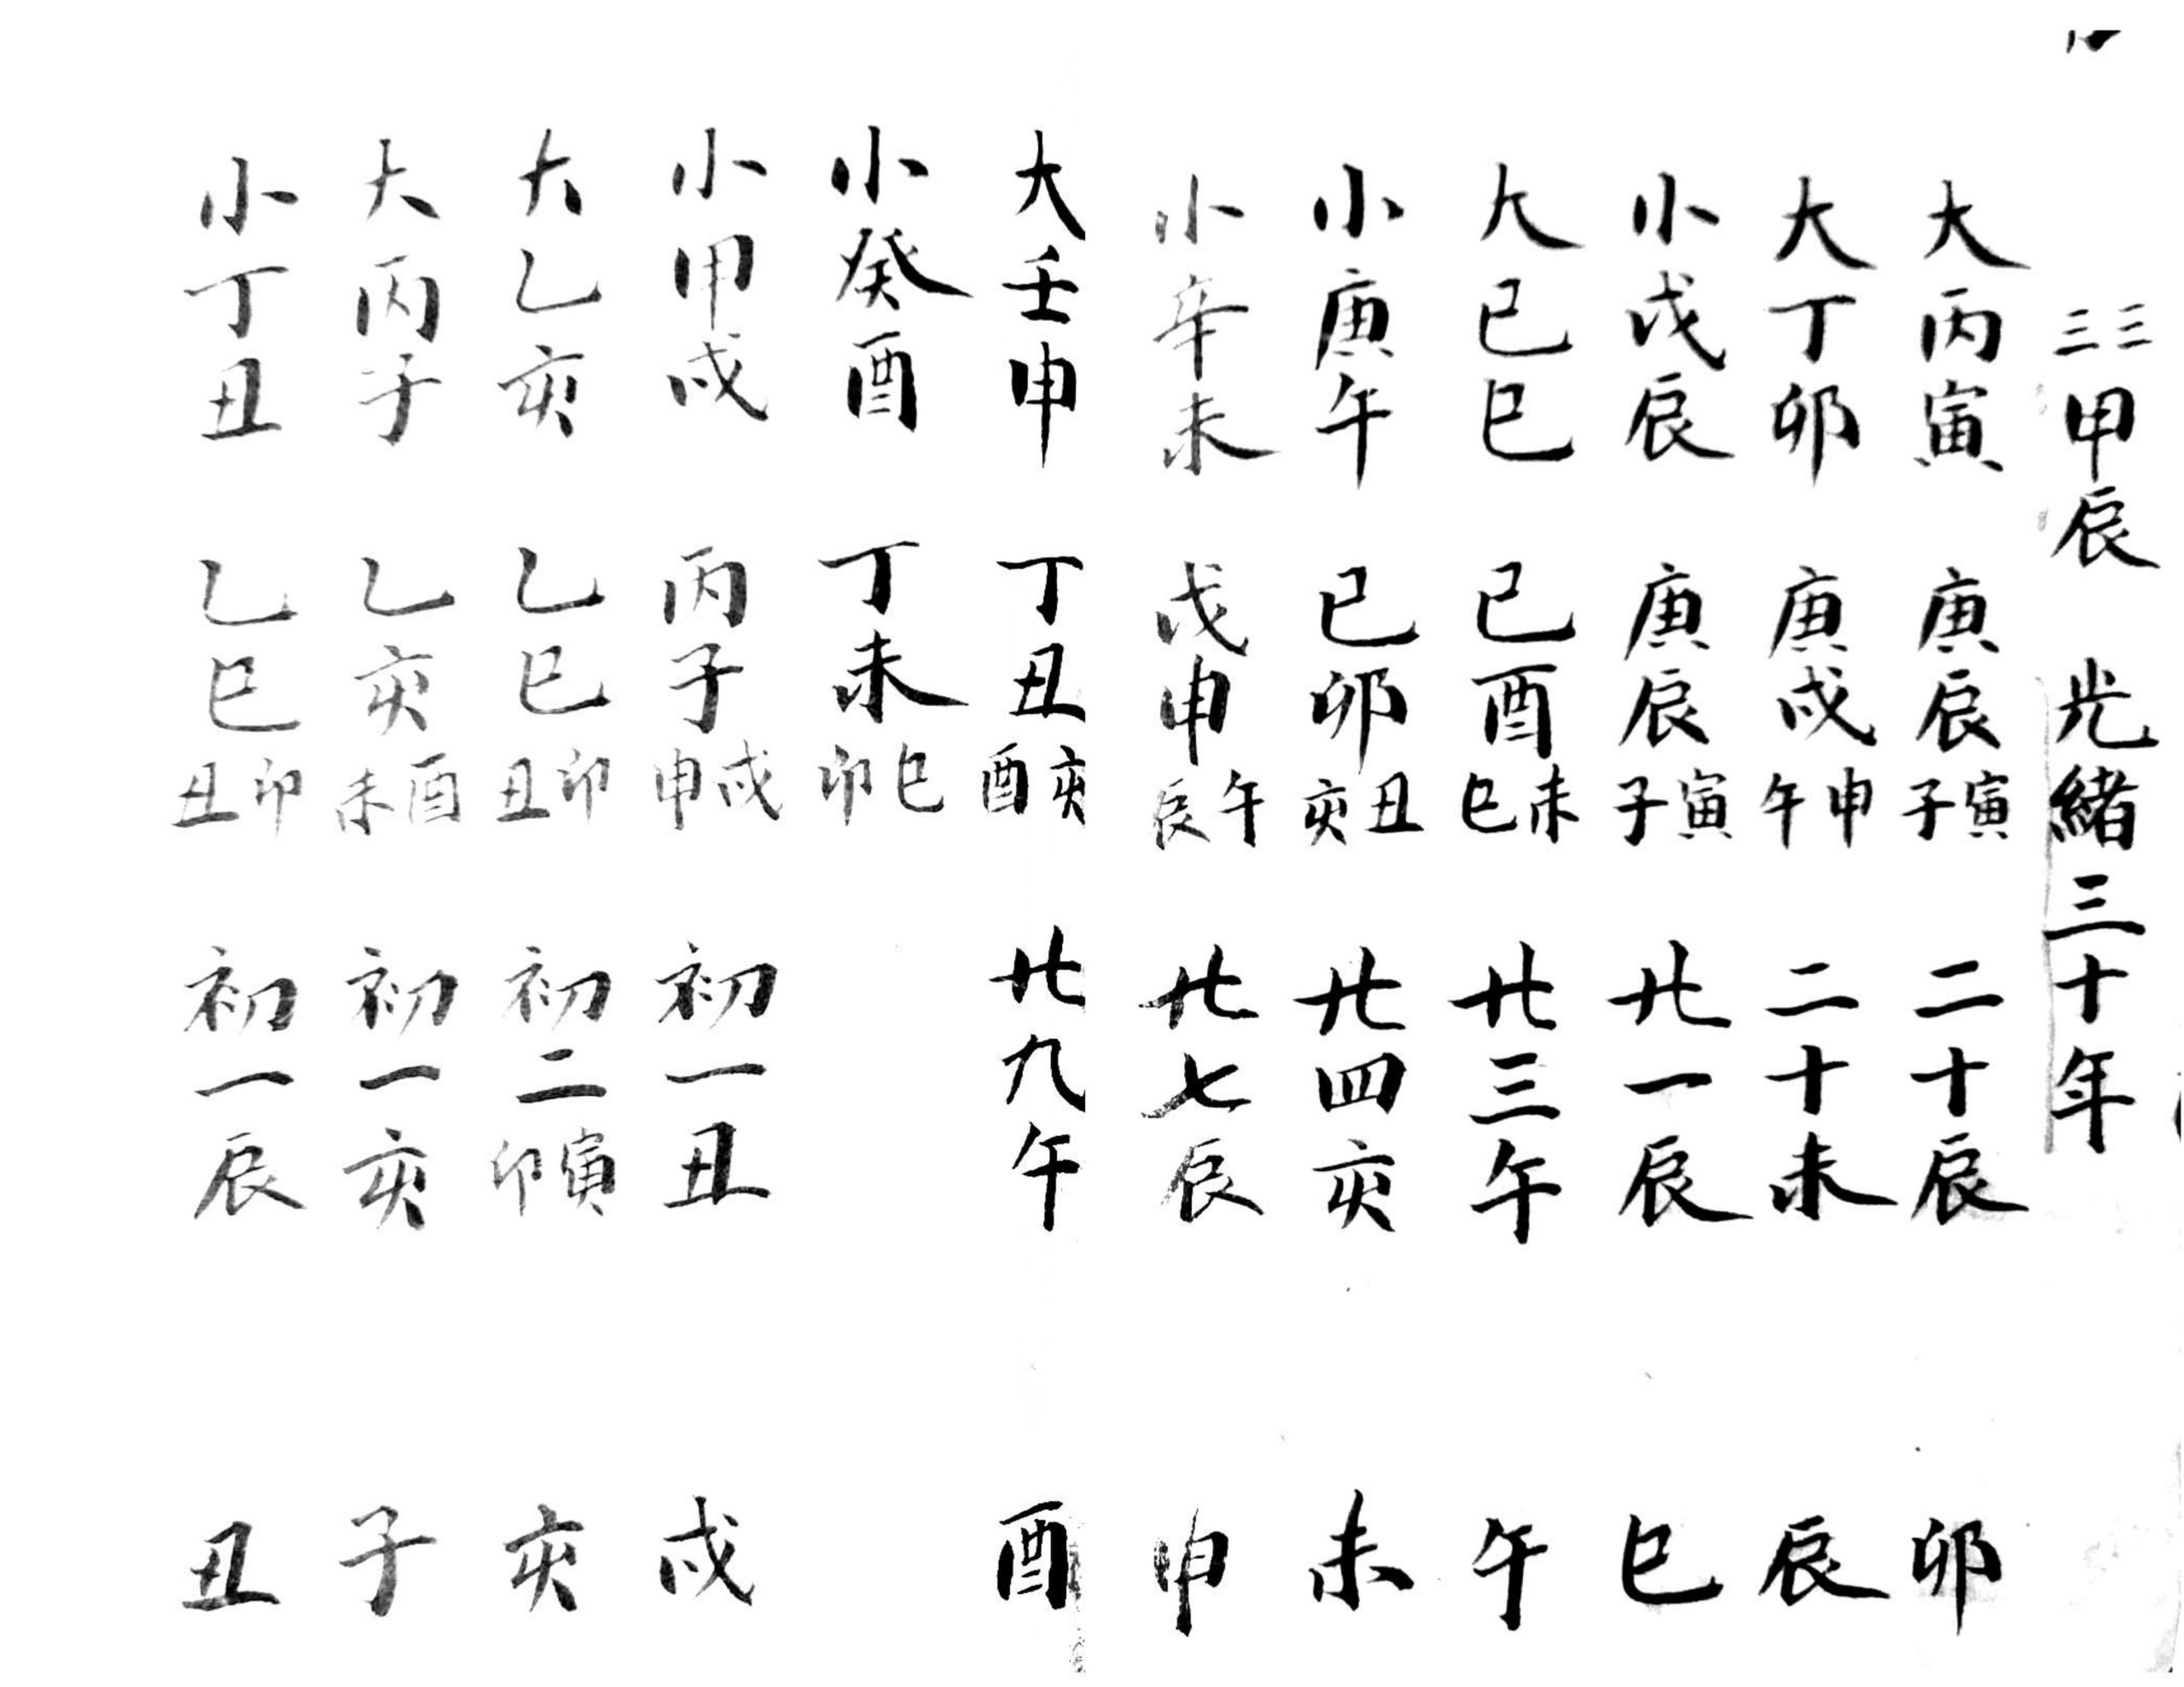 三三甲辰 光緒三十年
大丙寅 庚辰寅子 二十辰 卯
大丁卯 庚戌申午 二十未 辰
小戊辰 庚辰寅子 廿一辰 巳
大己巳 己酉未巳 廿三午 午
小庚午 己卯丑亥 廿四亥 未
小辛未 戊申午辰 廿七辰 申
大壬申 丁丑亥酉 廿九午 酉
小癸酉 丁未巳卯
小甲戌 丙子戌申 初一丑 戌
大乙亥 乙巳卯丑 初二寅卯 亥
大丙子 乙亥酉未 初一亥 子
小丁丑 乙巳卯丑 初一辰 丑